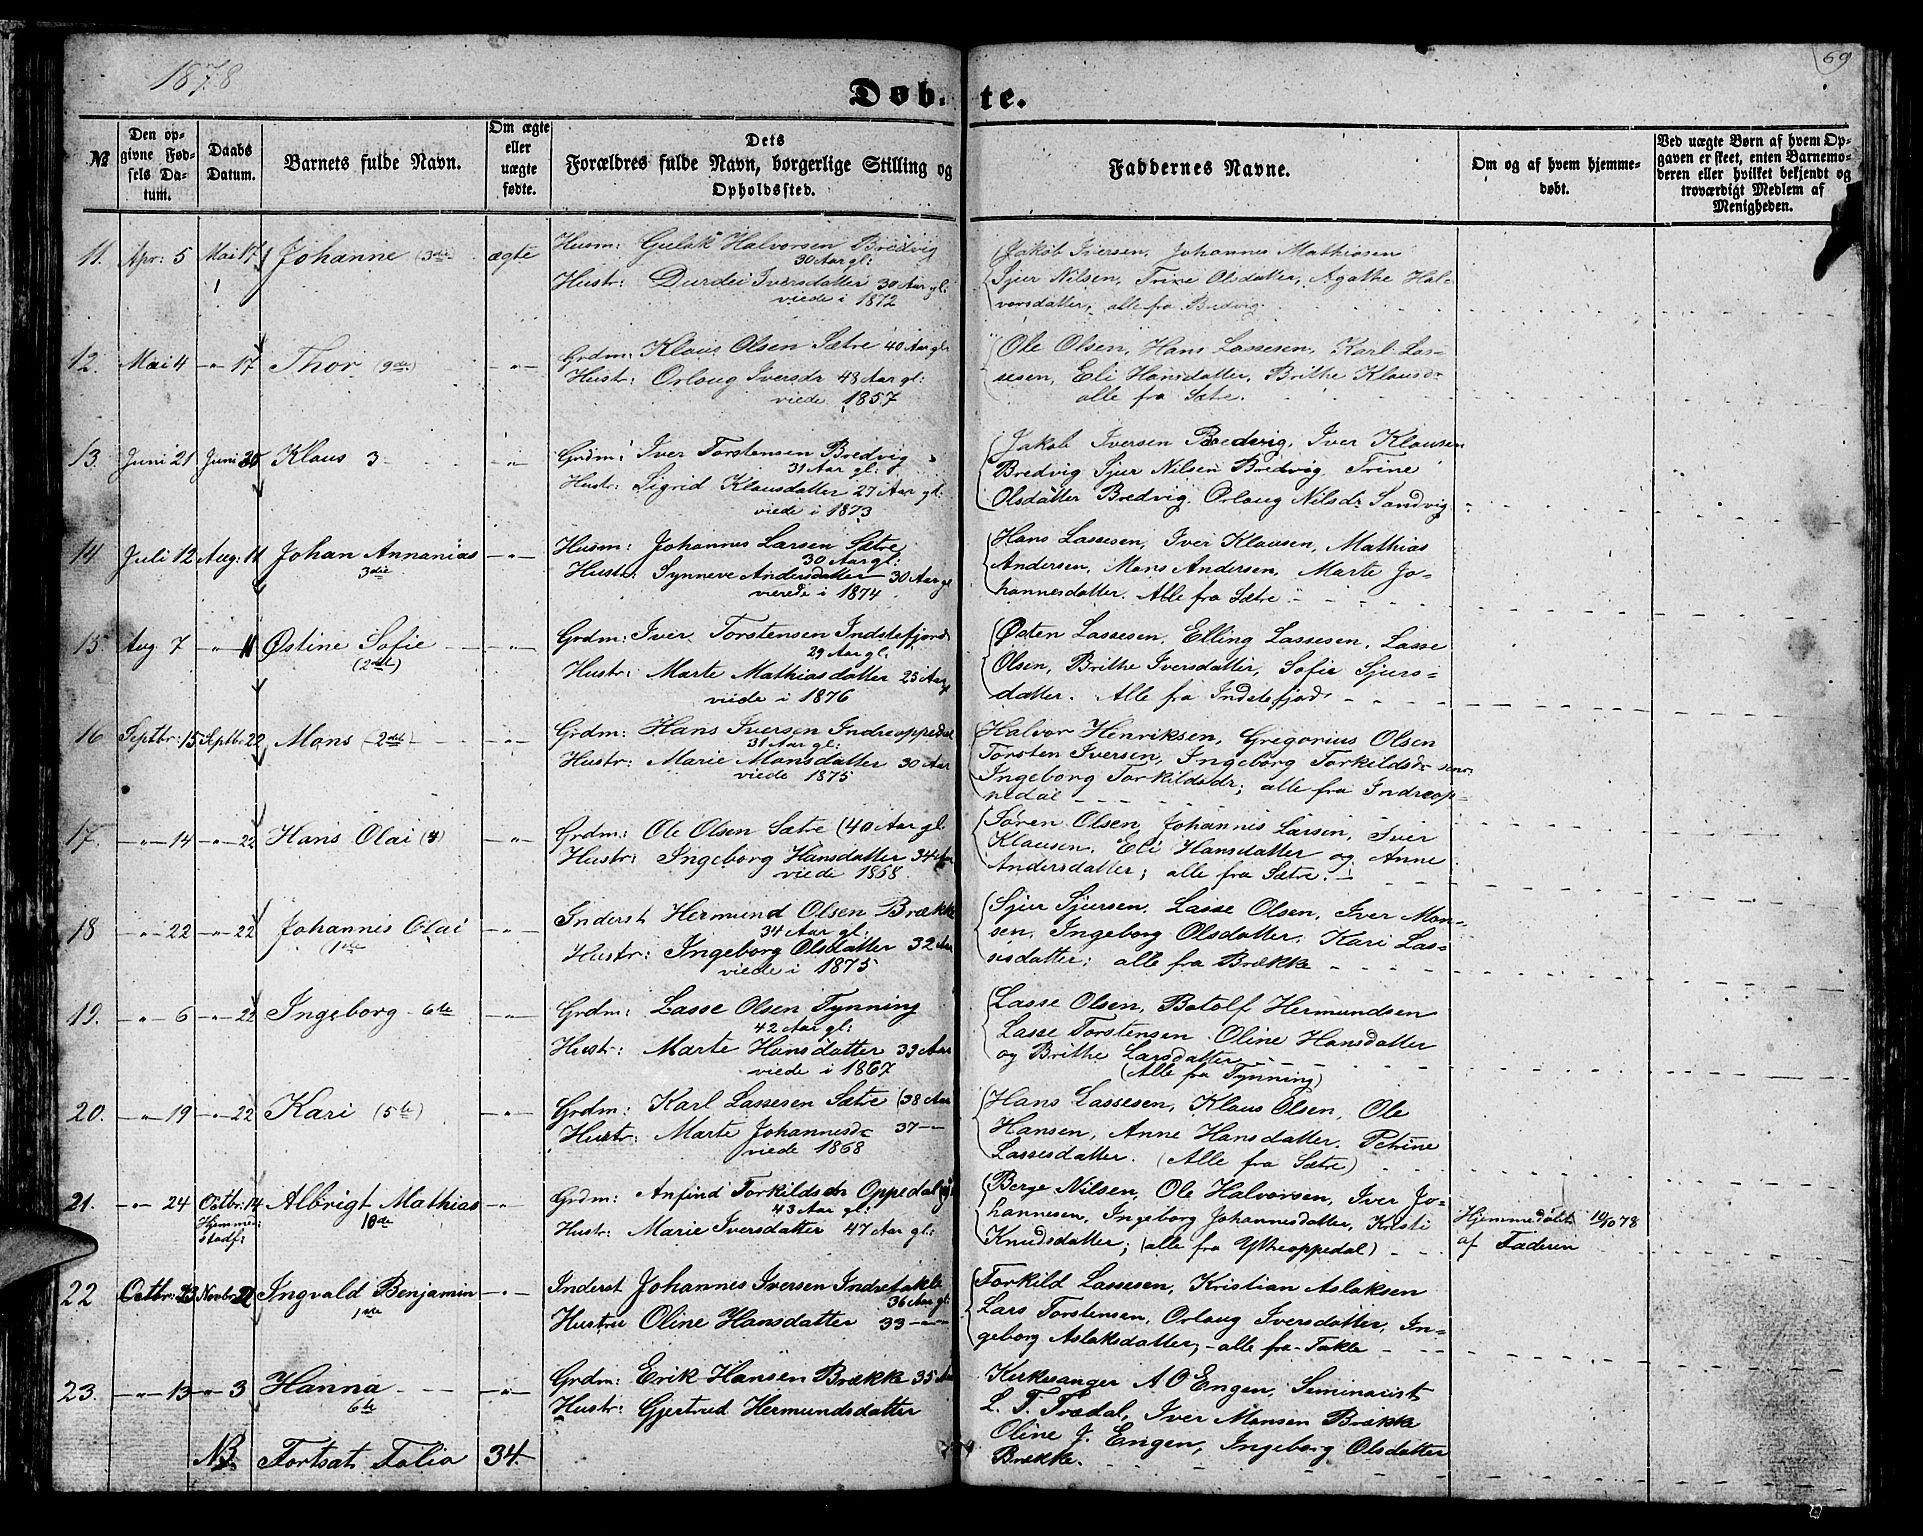 1878
69
Døbte.
№
Den opgivne Fødsels Datum.
Daabs Datum.
Barnets fulde Navn.
Om ægte eller uægte fødte.
Dets Forældres fulde Navn, borgerlige Stilling og Opholdssted.
Faddernes Navne.
Om og af hvem hjemmedøbt.
Ved uægte Børn af hvem Opgaven er skeet, enten Barnemoderen eller hvilket bekjendt og troværdigt Medlem af Menigheden.
11. Apr: 5 Mai 17 Johanne (3die ægte
Husm: Gulak Halvorsen Bredvig
30 Aar gl:
Hustr: Durdei Iversdatter 30 Aar gl:
viede i 1872
Jakob Iversen, Johannes Mathiasen
Sjur Nilsen, Trine Olsdatter, Agathe Hal-
vorsdatter, alle fra Bredvig.
12. Mai 4 -"- 17 Thor (9de) -"-
Grdm: Klaus Olsen Sætre 40 Aar gl:
Hustr: Orloug Iversdr 43 Aar gl:
viede 1857
Ole Olsen, Hans Lassesen, Karl Las-
sesen, Eli Hansdatter, Brithe Klausdr
alle fra Sætre.
13. Juni 21 Juni 30 Klaus 3 -"-
Grdm: Iver Torstensen Bredvig
31 Aar gl:
Hustr: Sigrid Klausdatter 27 Aar gl:
viede i 1873
Jakob Iversen Bredvig, Iver Klausen
Bredvig Sjur Nilsen Bredvig, Trine
Olsdatter Bredvig, Orloug Nilsdr Sandvig
14 Juli 12 Aug: 11 Johan Annanias -"-
3die
Husm: Johannes Larsen Sætre
30 Aar gl:
Hustr: Synneve Andersdatter 30 Aar gl
vierede i 1874
Hans Lassesen, Iver Klausen, Mathias
Andersen, Mons Andersen, Marte Jo-
hannesdatter. Alle fra Sætre
15. Aug 7 -"- 11 Østine Sofie -"-
(2det)
Grdm: Iver Torstensen Indstefjord
29 Aar gl:
Hustr: Marte Mathiasdatter 25 Aar gl
viede i 1876
Østen Lassesen, Elling Lassesen, Lasse
Olsen, Brithe Iversdatter, Sofie Sjurs-
datter. Alle fra Indstefjord
16 Septbr: 15 Septbr 22 Mons (2det) -"-
Grdm: Hans Iversen Indreoppedal
31 Aar gl:
Hustr: Marie Monsdatter 30 Aar
viede 1875
Halvor Henriksen, Gregorius Olsen
Torsten Iversen, Ingeborg Torkildsdr senr:
Ingeborg Torkildsdr; alle fra Indreop-
pedal
17. -"- 14 -"- 22 Hans Olai (4) -"-
Grdm: Ole Olsen Sætre (40 Aar gl
Hustr: Ingeborg Hansdatter 34 Aar
viede 1868
Søren Olsen, Johannis Larsen, Iver
Klausen, Eli Hansdatter og Anne
Andersdatter; alle fra Sætre.
18 -"- 22 -"- 22 Johannes Olai -"-
(1ste
Inderst Hermund Olsen Brække
34 Aar gl:
Hustr: Ingeborg Olsdatter 32 Aar
viede i 1875
Sjur Sjursen, Lasse Olsen, Iver Mon-
sen, Ingeborg Olsdatter, Kari Las-
sesdatter; alle fra Brække
19. -"- 6 -"- 22 Ingeborg 6te -"-
Grdm: Lasse Olsen Tynning
42 Aar gl:
Hustr: Marte Hansdatter 39 Aar
viede i 1867
Lasse Olsen, Botolf Hermundsen
Lasse Torstensen Oline Hansdatter
og Brithe Larsdatter
(Alle fra Tynning)
20. -"- 19 -"- 22 Kari (5te) -"-
Grdm: Karl Lassesen Sætre (38 Aar
Hustr: Marte Johannesdr 37 -"-
viede 1868
Hans Lassesen, Klaus Olsen, Ole
Hansen, Anne Hansdatter, Petrine
Lassesdatter. (Alle fra Sætre)
21. -"- 24 Octbr: 14 Albrigt Mathias -"-
Hjemmed: Stadf: 10de
Grdm: Anfind Torkildsdr Oppedal
43 Aar gl:
Hustr: Marie Iversdatter 47 Aar gl:
Berge Nilsen, Ole Halvorsen, Iver Jo-
hannesen, Ingeborg Johannesdatter, Kristi
Knudsdatter; (alle fra Ytreoppedal)
Hjemmedøbt 10/10 78
af Faderen
22 Octbr: 23 Novbr: Ingvald Benjamin -"-
1ste
Inderst Johannes Iversen Indretakle
36 Aar gl:
Hustru Oline Hansdatter 33 -"-
Torkild Lassesen, Kristian Aslaksen
Lars Torstensen, Orloug Iversdatter, In-
geborg Aslaksdatter, - alle fra Takle
23. -"- 13 -"- 3 Hanna -"-
6te
Grdm: Erik Hansen Brække 35 Aar
Hustr: Gjertrud Hermundsdatter
Kirkesanger A O Engen, Seminarist
L. T. Tredal, Iver Monsen Brække
Oline J. Engen, Ingeborg Olsdatter
Brække.
NB. Fortsat Folio 34